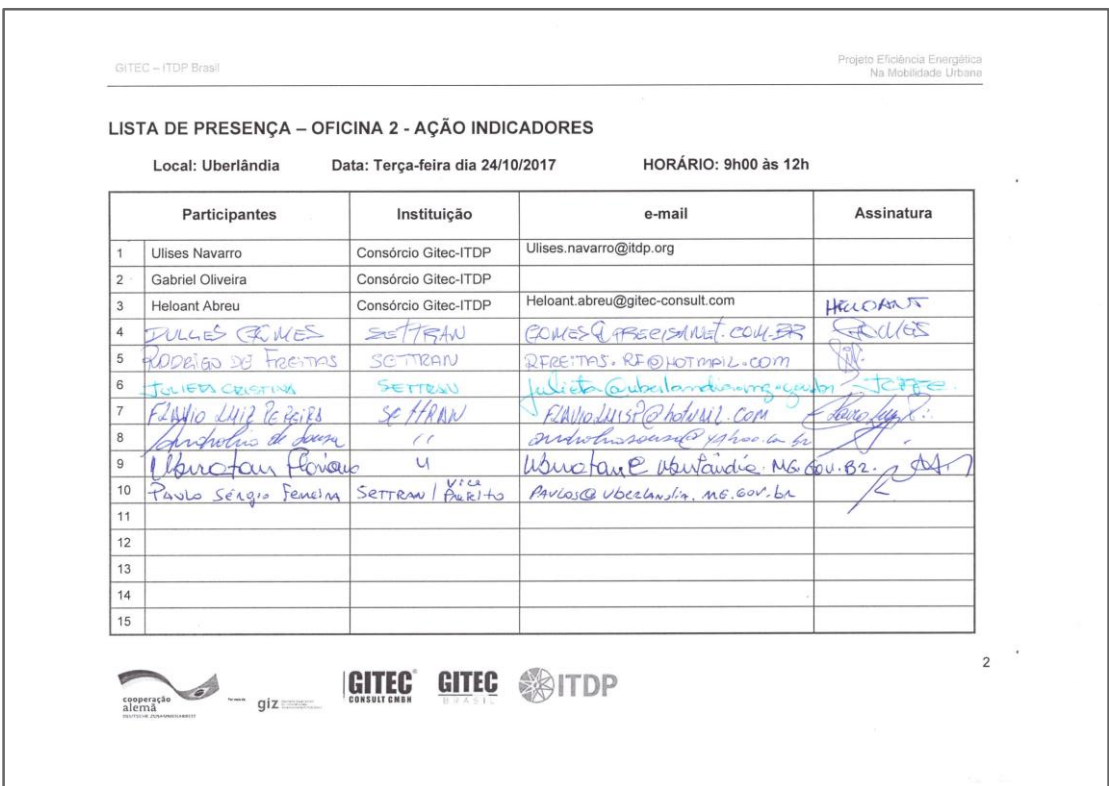 GITEC – ITDP Brasil
Projeto Eficiência Energética
Na Mobilidade Urbana
LISTA DE PRESENÇA – OFICINA 2 - AÇÃO INDICADORES
Local: Uberlândia Data: Terça-feira dia 24/10/2017 HORÁRIO: 9h00 às 12h
Participantes Instituição e-mail Assinatura
1 Ulises Navarro Consórcio Gitec-ITDP Ulises.navarro@itdp.org
2 Gabriel Oliveira Consórcio Gitec-ITDP
3 Heloant Abreu Consórcio Gitec-ITDP Heloant.abreu@gitec-consult.com HELOANT
4 DULCES GOMES SETTRAN
5 RODRIGO DE FREITAS SETTRAN RFREITAS.RF@HOTMAIL.COM
6 JULIETA CRISTINA SETTRAN
7 FLAVIO LUIZ PEREIRA SETTRAN FLAVIOLUISP@hotmail.com
8 de Sousa 〃
9 Ubiratan 〃
10 Paulo Sérgio Ferreira SETTRAN / Vice PAULOS@Uberlandia.MG.GOV.br
11
12
13
14
15
2
cooperação
alemã
DEUTSCHE ZUSAMMENARBEIT
giz
GITEC
CONSULT GMBH
GITEC
BRASIL
ITDP